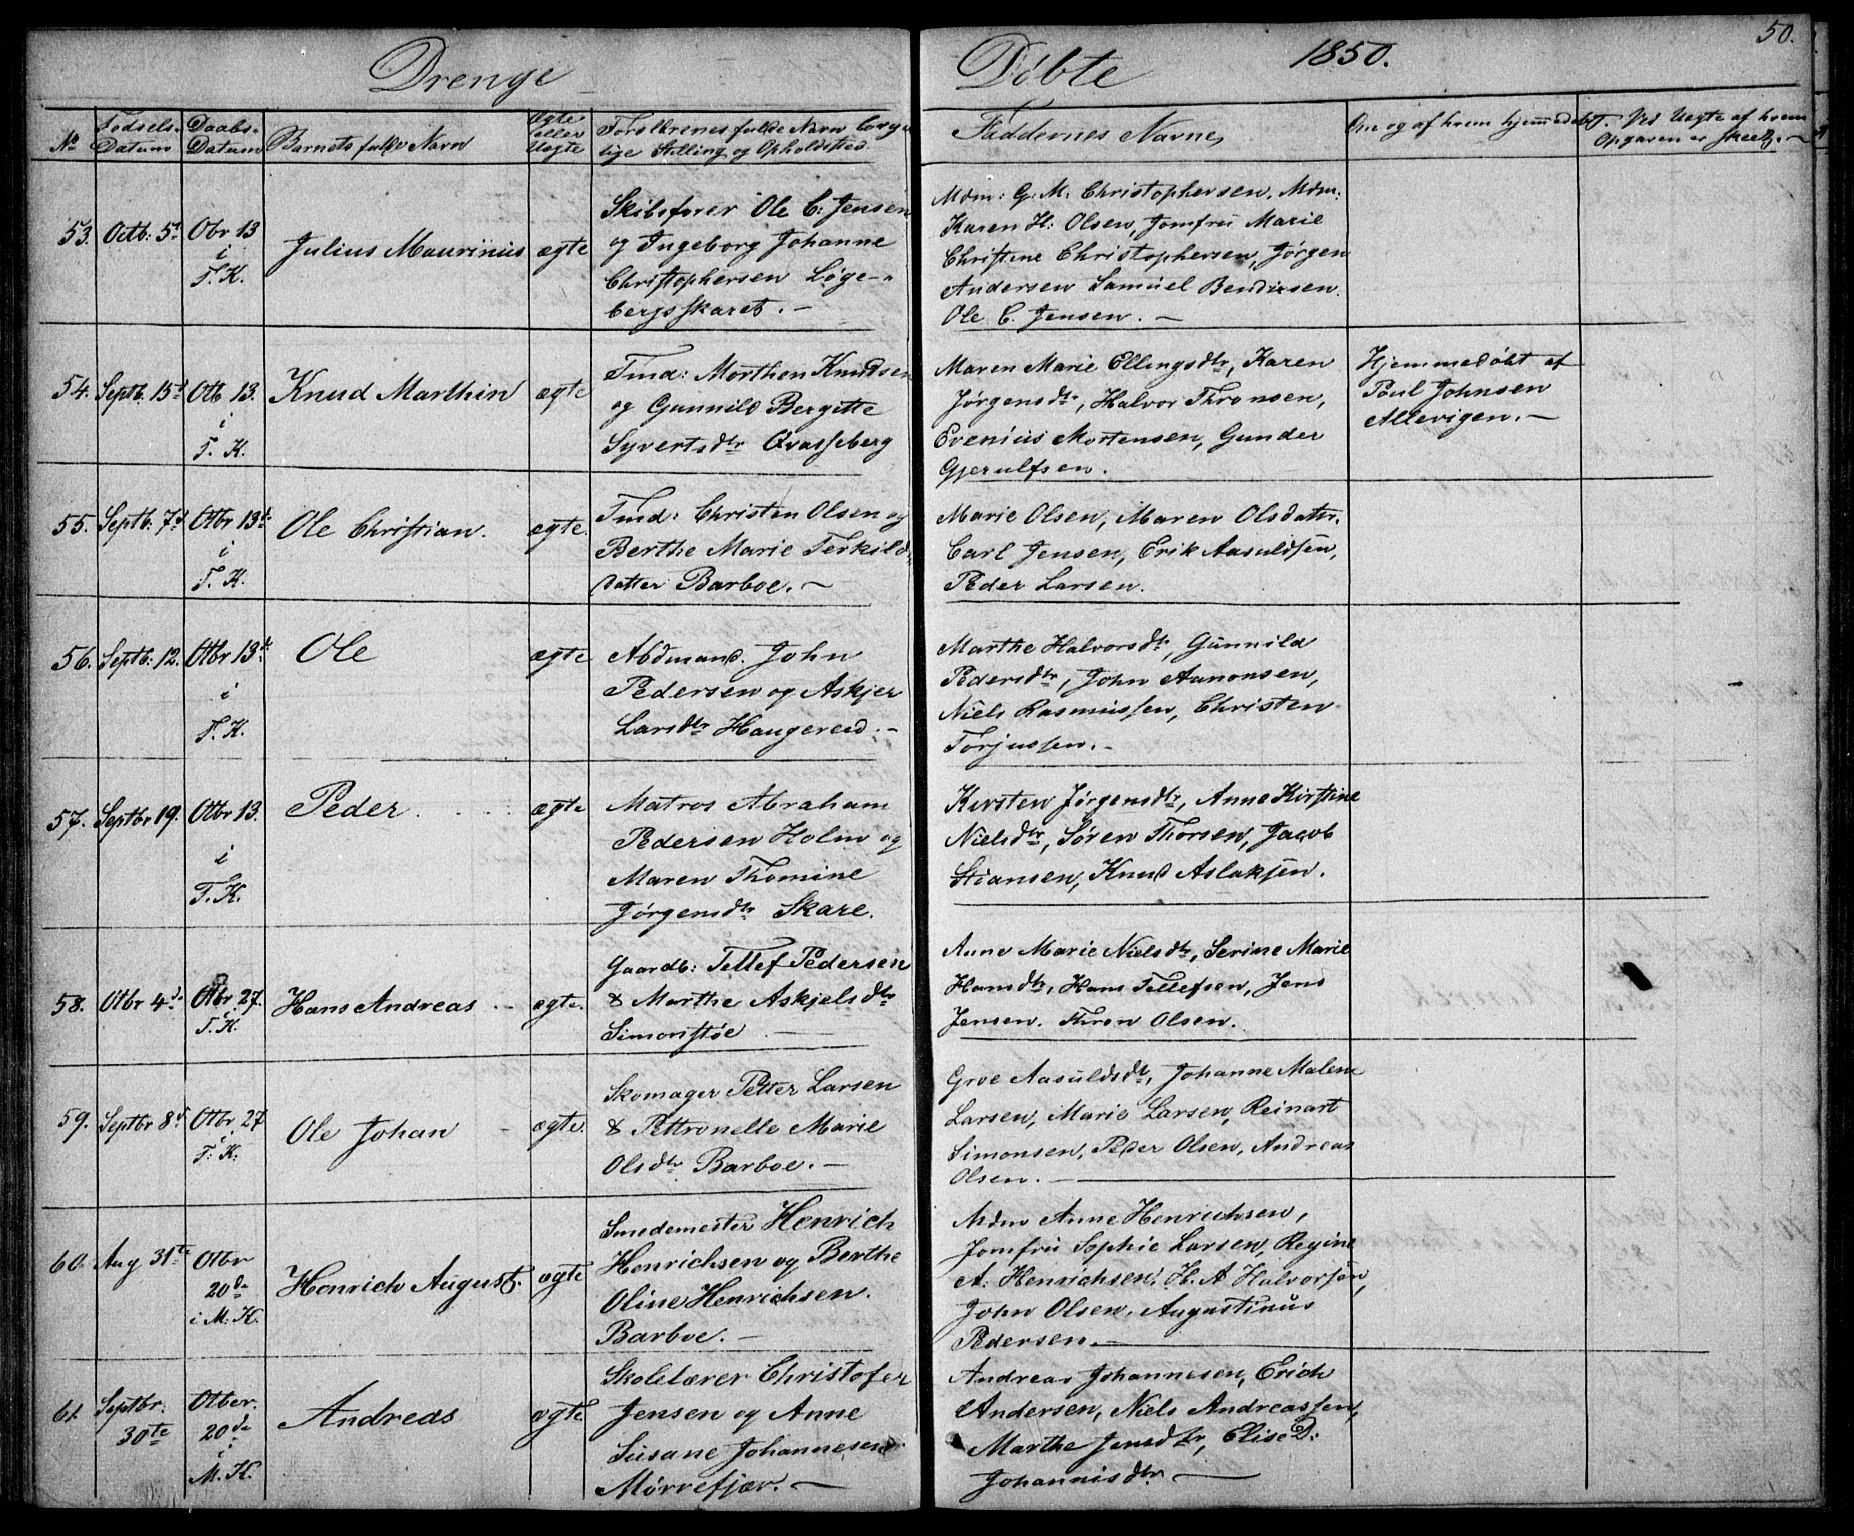 Drenge
Døbte 1850.
50.
No
Fødsels-
Datum
Daabs-
Datum
Barnets fulde Navn
Ægte
eller
Uægte
Forældrenes fulde Navn borger-
lige Stilling og Opholdsted.
Faddernes Navne,
Om og af hvem hjemmedøbt.
Ved Uægte af hvem
Opgaven er skeet.
53. Octb: 5t
Obr 13
i
T. K.
Julius Maurinius
ægte
Skibsfører Ole C: Jensen
og Ingeborg Johanne
Christophersen Løge-
bergsskaret. -
Mdm: G. M. Christophersen. Mdm:
Karen H: Olsen, Jomfru Marie
Christine Christophersen, Jørgen
Andersen Samuel Bendixsen.
Ole C. Jensen. -
54. Septb. 15d
Otb 13.
i
T. K.
Knud Marthin
ægte
Tmd: Morthen Knudsen
og Gunnild Bergitte
Syvertsdtr Qvasseberg
Maren Marie Ellingsdtr, Karen
Jørgensdtr, Halvor Thronsen,
Evenius Mortensen, Gunder
Gjerulfsen.
Hjemmedøbt af
Poul Johnsen
Allevigen. -
55. Septb: 7d
Otbr 13de
i
T. K.
Ole Christian.
ægte.
Tmd: Christen Olsen og
Berthe Marie Terkilds
datter Barboe. -
Marie Olsen, Maren Olsdatr.
Carl Jensen, Erik Aasuldsen,
Peder Larsen.
56. Septb: 12.
Otbr 13de
i
T. K.
Ole
ægte
Abdmand. John
Pedersen og Askjer
Larsdtr Haugereid. -
Marthe Halvorsdtr, Gunnild
Pedersdtr, John Aanonsen,
Niels Rasmussen, Christen
Torjussen. -
57. Septbr 19.
Otbr 13.
i
T. K.
Peder.
ægte
Matros Abraham
Pedersen Holm og
Maren Thomine
Jørgensdtr Skare.
Kirsten Jørgensdtr, Anne Kirstine
Nielsdtr, Søren Thorsen, Jacob
Stiansen, Knud Aslaksen.
58. Otbr 4de
Otbr 27.
i
T. K.
Hans Andreas
ægte.
Gaardb: Tellef Pedersen
& Marthe Askjelsdtr
Simonstøe
Anne Marie Nielsdtr, Serine Marie
Hansdtr, Hans Tellefsen, Jens
Jensen. Thron Olsen.
59. Septbr 8d
Otbr. 27
i
T. K:
Ole Johan
ægte.
Skomager Petter Larsen
& Pettronelle Marie
Olsdtr Barboe. -
Groe Aasuldsdtr, Johanne Malene
Larsen, Marie Larsen, Reinart
Simonsen, Peder Olsen, Andreas
Olsen. -
60. Aug 31te
Otbr
20de
i M. K.
Henrich August.
ægte
Smedemester Henrich
Henrichsen og Berthe
Oline Henrichsen.
Barboe. -
Mdm Anne Henrichsen,
Jomfru Sophie Larsen, Regine
A. Henrichsen. H. A Halvorsen,
John Olsen. Augustinus
Pedersen. -
61. Septbr:
30te
Otber.
20de
i
M. K.
Andreas
ægte
Skolelærer Christofer
Jensen og Anne
Susane Johannesen
Mørrefjær. -
Andreas Johannesen, Erich
Andersen, Niels Andreassen,
Marthe Jensdtr, Elise D:
Johannisdtr -